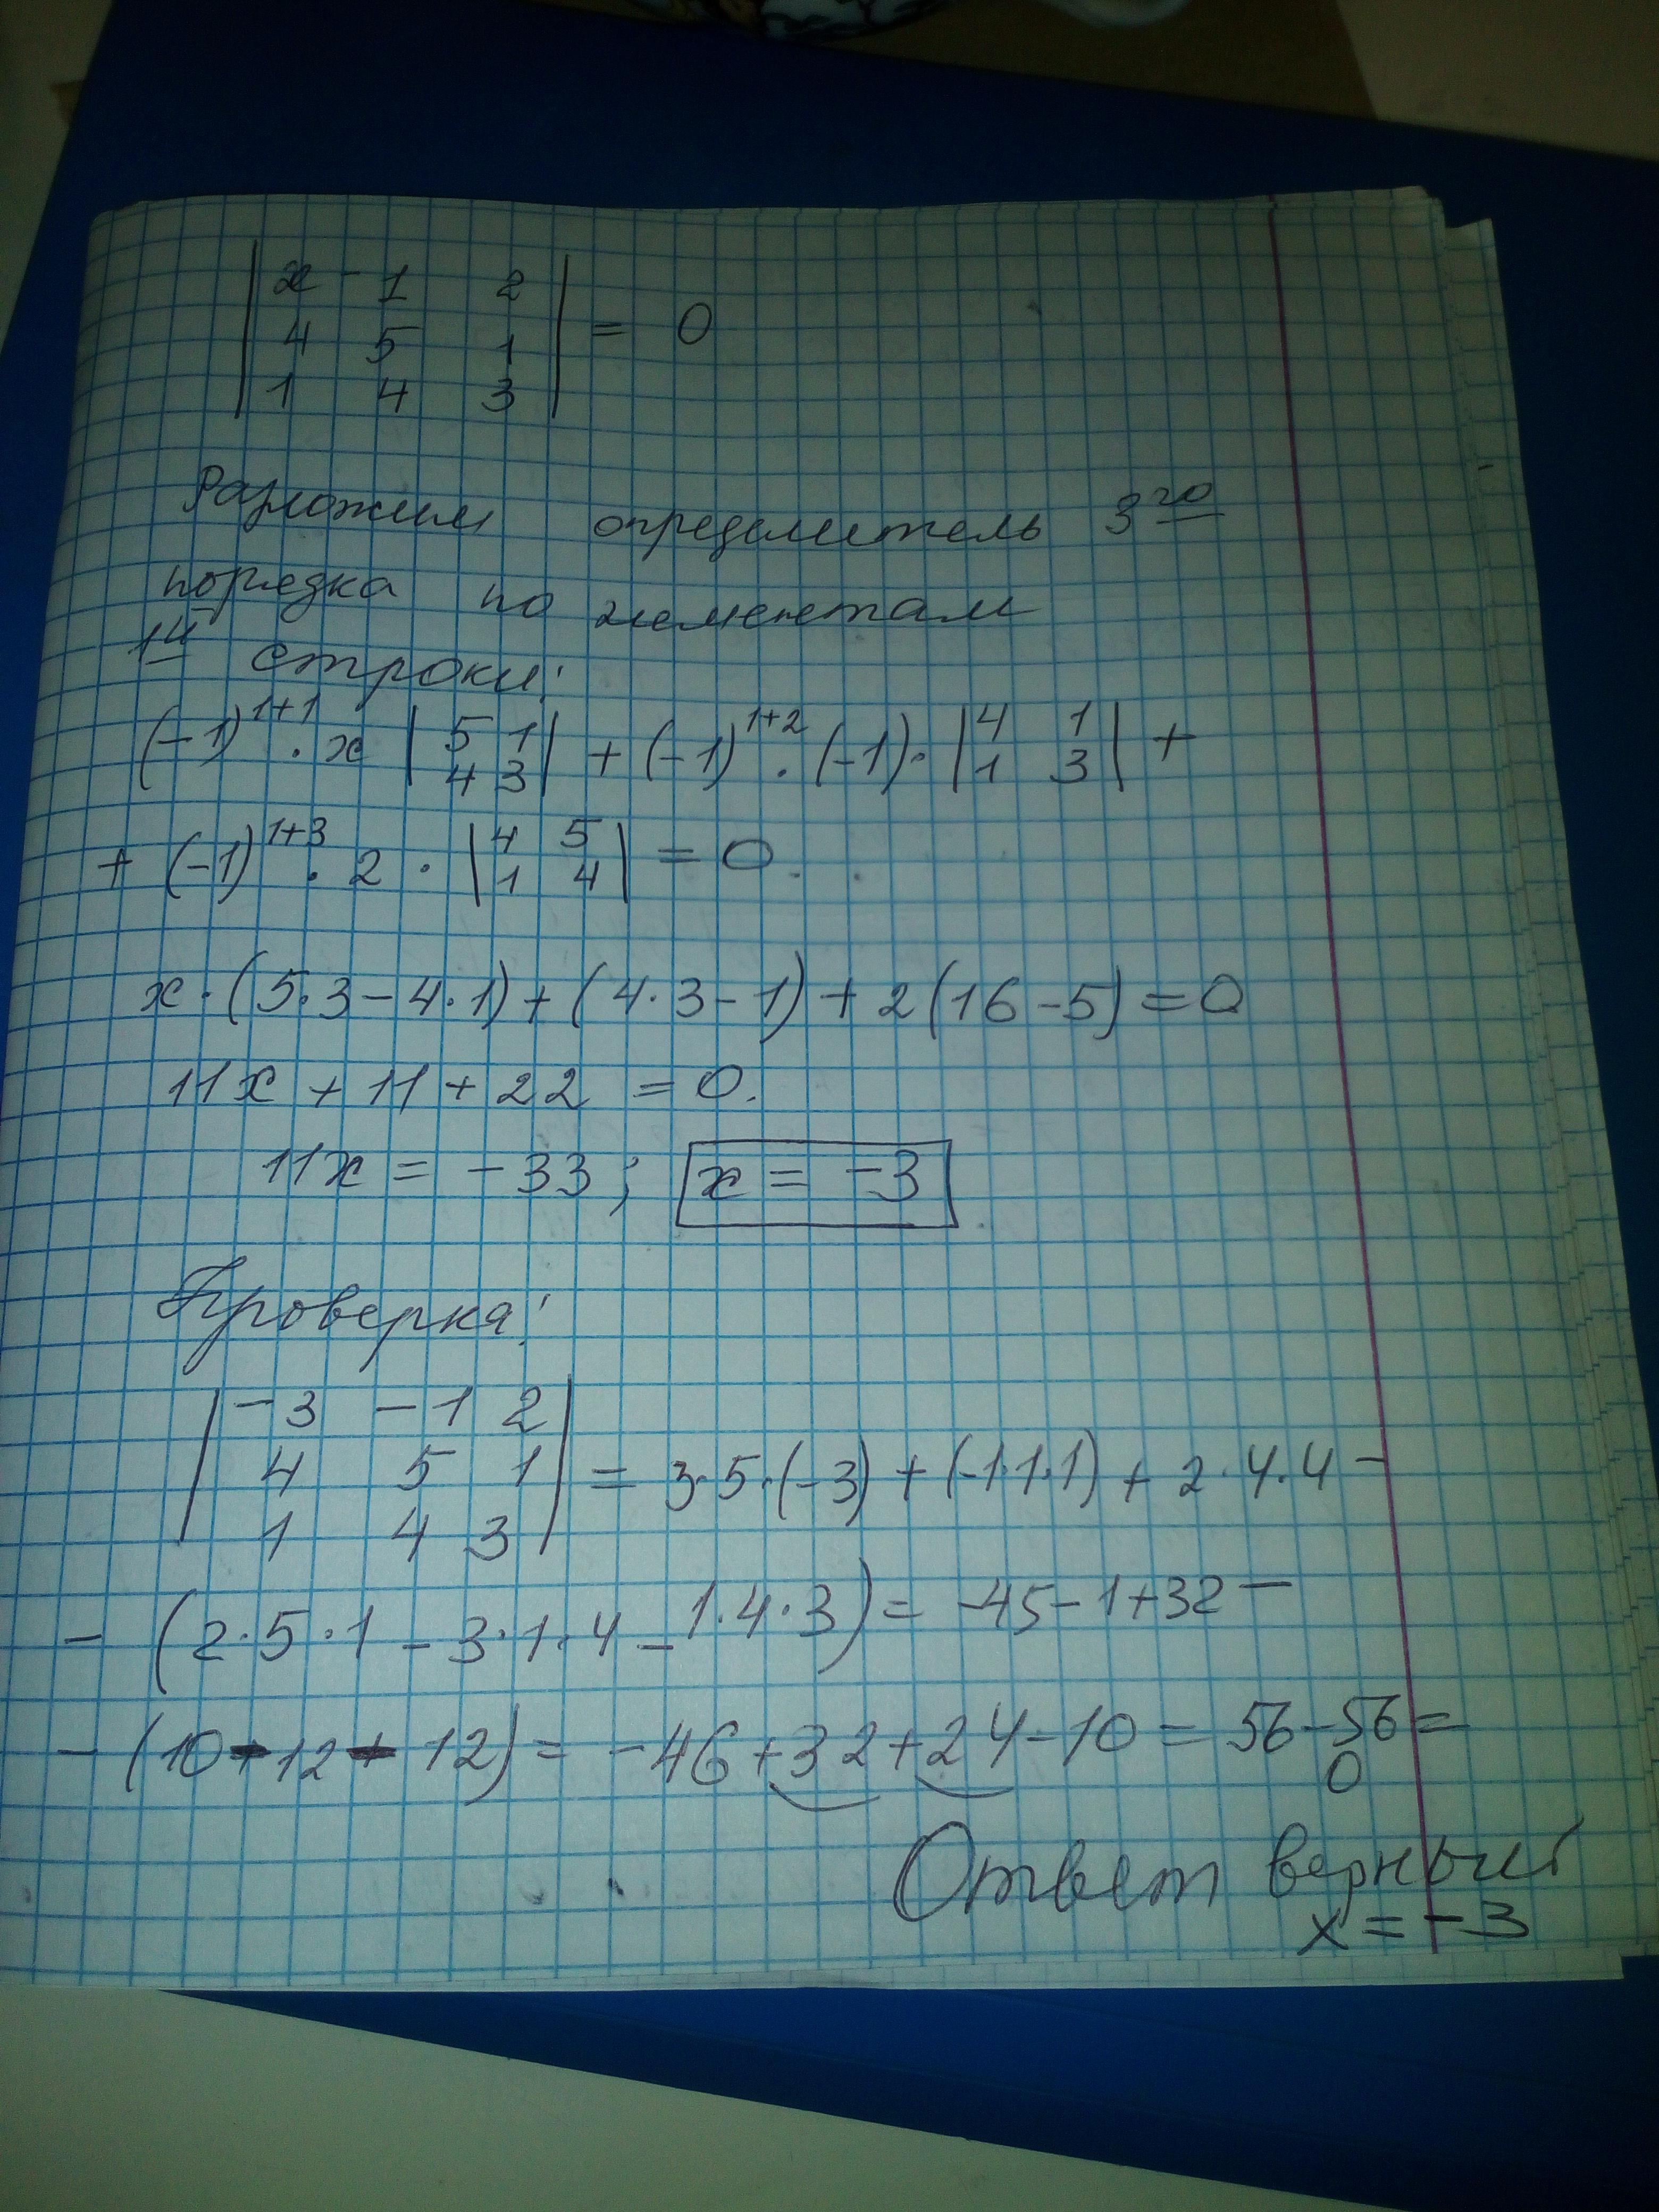 | x -1 2 |
| 4 5 1 | = 0
| 1 4 3 |
Разложим определитель 3го
порядка по элементам
1й строки:
(-1)^{1+1} · x | 5 1 ; 4 3 | + (-1)^{1+2} · (-1) · | 4 1 ; 1 3 | +
+ (-1)^{1+3} · 2 · | 4 5 ; 1 4 | = 0.
x·(5·3-4·1)+(4·3-1)+2(16-5)=0
11x+11+22 = 0.
11x = -33; x = -3
Проверка:
| -3 -1 2 |
| 4 5 1 | = 3·5·(-3)+(-1·1·1)+2·4·4-
| 1 4 3 |
- (2·5·1-3·1·4-1·4·3) = -45-1+32-
- (10-12-12) = -46+32+24-10 = 56-56=
0
Ответ верный
x = -3